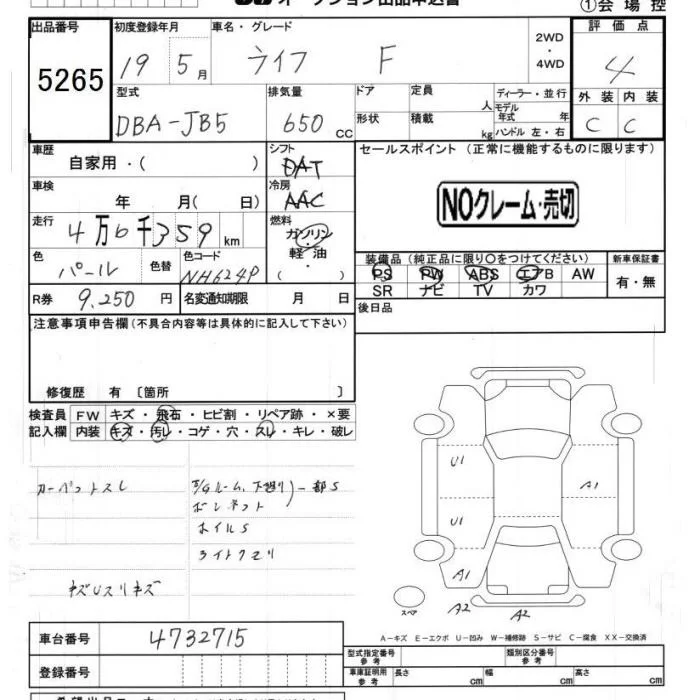 オークション出品申込書
①会場控
出品番号 初度登録年月 車名・グレード 評価点
5265 19 5月 ライフ F 2WD・4WD 4
型式 排気量 ドア 定員 人 ディーラー・並行 外装 内装
DBA-JB5 650CC 形状 積載 kg モデル年式 年 ハンドル 左・右 C C
車歴 自家用・( ) シフト DAT セールスポイント(正常に機能するものに限ります)
車検 年 月( 日) 冷房 AAC NOクレーム・売切
走行 4万6千359km 燃料 ガソリン・軽油 ( ・ )
色 パール 色替 色コード NH624P 装備品(純正品に限り○をつけてください) 新車保証書
PS PW ABS エアB AW 有・無
SR ナビ TV カワ
R券 9,250円 名変通知期限 月 日 後日品
注意事項申告欄(不具合内容等は具体的に記入して下さい)
修復歴 有 〔箇所 〕
検査員 FW キズ・飛石・ヒビ割・リペア跡・×要
記入欄 内装 キズ・汚レ・コゲ・穴・スレ・キレ・破レ
カーペットスレ
ルーム、下廻り)一部S
ボンネット
ホイルS
ライトクモリ
キズUスリキズ
U1
A1
U1
A1
A2
A2
スペア
A-キズ E-エクボ U-凹み W-補修跡 S-サビ C-腐食 XX-交換済
車台番号 4732715
型式指定番号 参考 類別区分番号 参考
登録番号 車庫証明用 参考 長さ cm 幅 cm 高さ cm